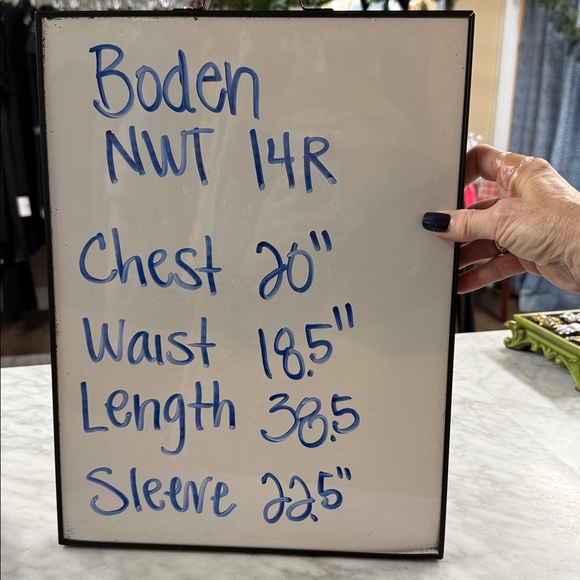 Boden
NWT 14R
Chest 20"
Waist 18.5"
Length 38.5
Sleeve 22.5"